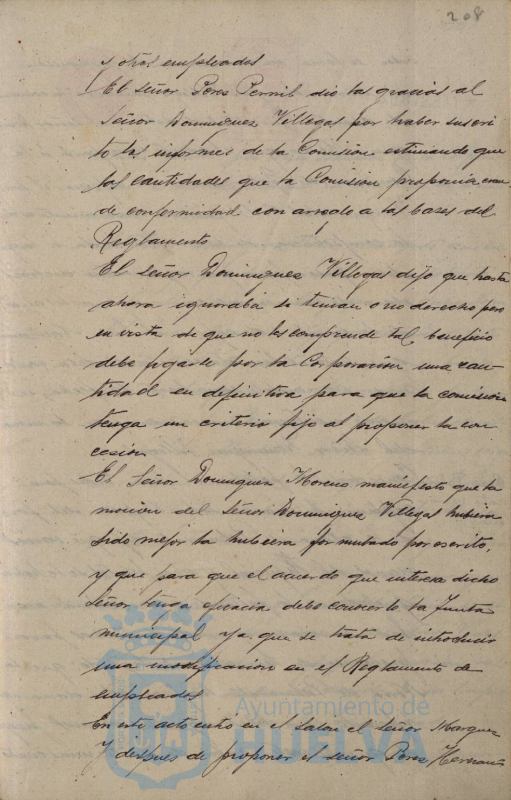 208
y otros empleados
El Señor Perez Pernil dio las gracias al
Señor Dominguez Villegas por haber suscri
to los informes de la Comision estimando que
las cantidades que la Comision proponia eran
de conformidad con arreglo a las bases del
Reglamento
El Señor Dominguez Villegas dijo que hasta
ahora ignoraba si tenian o no derecho pero
en vista de que no les comprende tal beneficio
debe fijarse por la Corporación una can
tidad en definitiva para que la comision
tenga un criterio fijo al proponer la con
cesion
El Señor Dominguez Moreno manifesto que la
mocion del Señor Dominguez Villegas hubiera
sido mejor la hubiera formulado por escrito,
y que para que el acuerdo que interesa dicho
Señor tenga eficacia debe conocerlo la Junta
municipal ya que se trata de introducir
una modificacion en el Reglamento de
empleados
En este acto entro en el Salon el Señor Marquez
Y despues de proponer el señor Perez
Ayuntamiento de
HUELVA